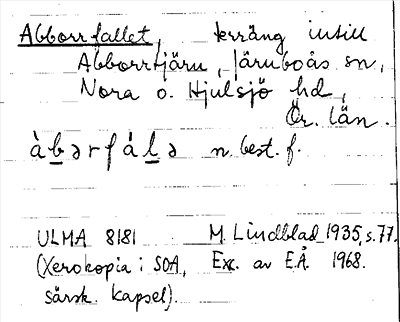 Abborrfallet, terräng intill
Abborrtjärn, Järnboås sn,
Nora o. Hjulsjö hd,
Ör. län.
àbərfálə n. best. f.
ULMA 8181 M. Lindblad 1935, s. 77.
(Xerokopia i SOA, Exc. av E.Å. 1968.
särsk. kapsel).